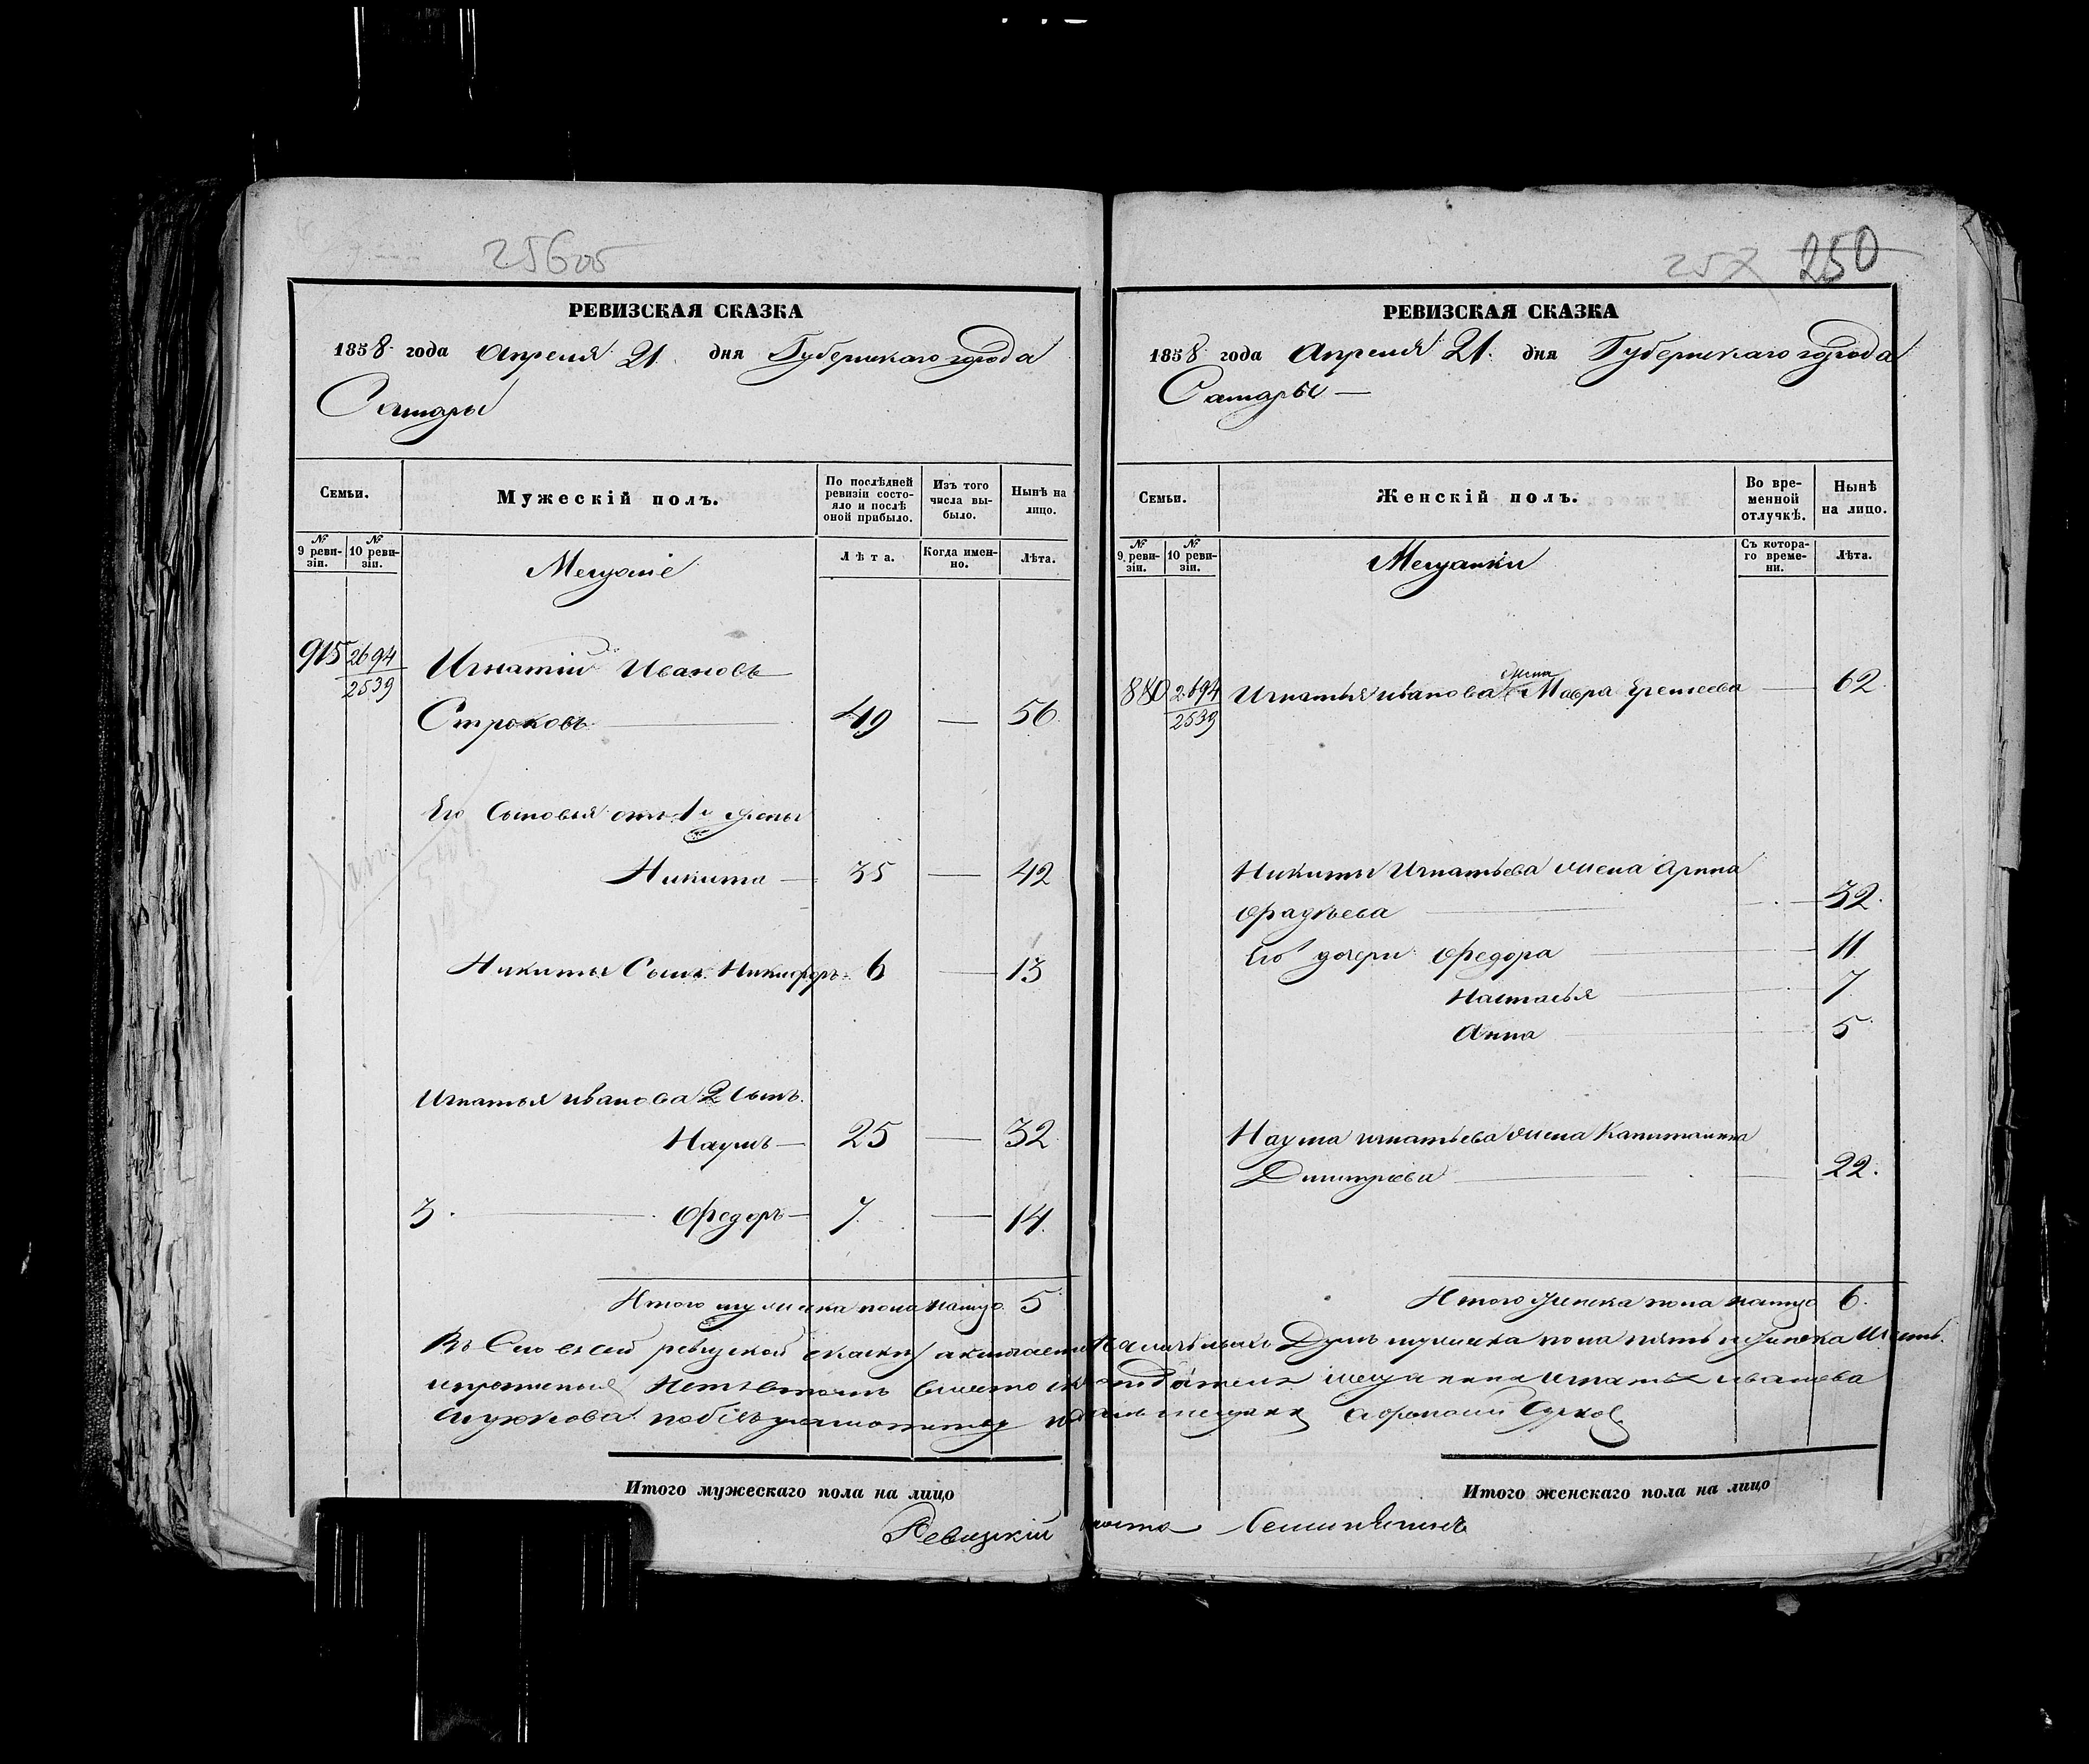 256об
РЕВИЗСКАЯ СКАЗКА
1858 года Апреля 21. дня Губернскаго города
Самары
Семьи.
Мужескій полъ.
По послѣдней ревизіи состояло и послѣ оной прибыло.
Изъ того числа выбыло.
Нынѣ на лицо.
№ 9 ревизіи.
№ 10 ревизіи.
Мещане
Лѣта.
Когда именно.
Лѣта.
915 2694/2539 Игнатій Ивановъ
Строковъ 49 — 56
Его Сыновья отъ 1й жены
Никита — 35 — 42
Никиты Сынъ Никифоръ 6 — 13
Игнатья Иванова 2 Сынъ
Наумъ — 25 — 32
3. Федоръ — 7 — 14
Итого мужеска пола на лицо 5
Итого мужескаго пола на лицо
257 250
РЕВИЗСКАЯ СКАЗКА
1858 года Апреля 21. дня Губернскаго города
Самары —
Семьи.
Женскій полъ.
Во временной отлучкѣ.
Нынѣ на лицо.
№ 9 ревизіи.
№ 10 ревизіи.
Мещанки
Съ котораго времени.
Лѣта.
880 2694/2539 Игнатья Иванова жена Мавра Еремеева — 62
Никиты Игнатьева жена Арина
Фадѣева — 32.
Его дочери Федора 11
Настасья 7
Анна 5
Наума Игнатьева жена Капитолина
Дмитриева — 22.
Итого женска пола на лицо 6.
Въ Сей ревизской сказки Душъ мужеска пола пять и женска шесть.
вместо мещанина Игнатья Иванова
мещанин
Итого женскаго пола на лицо
Ревизскій